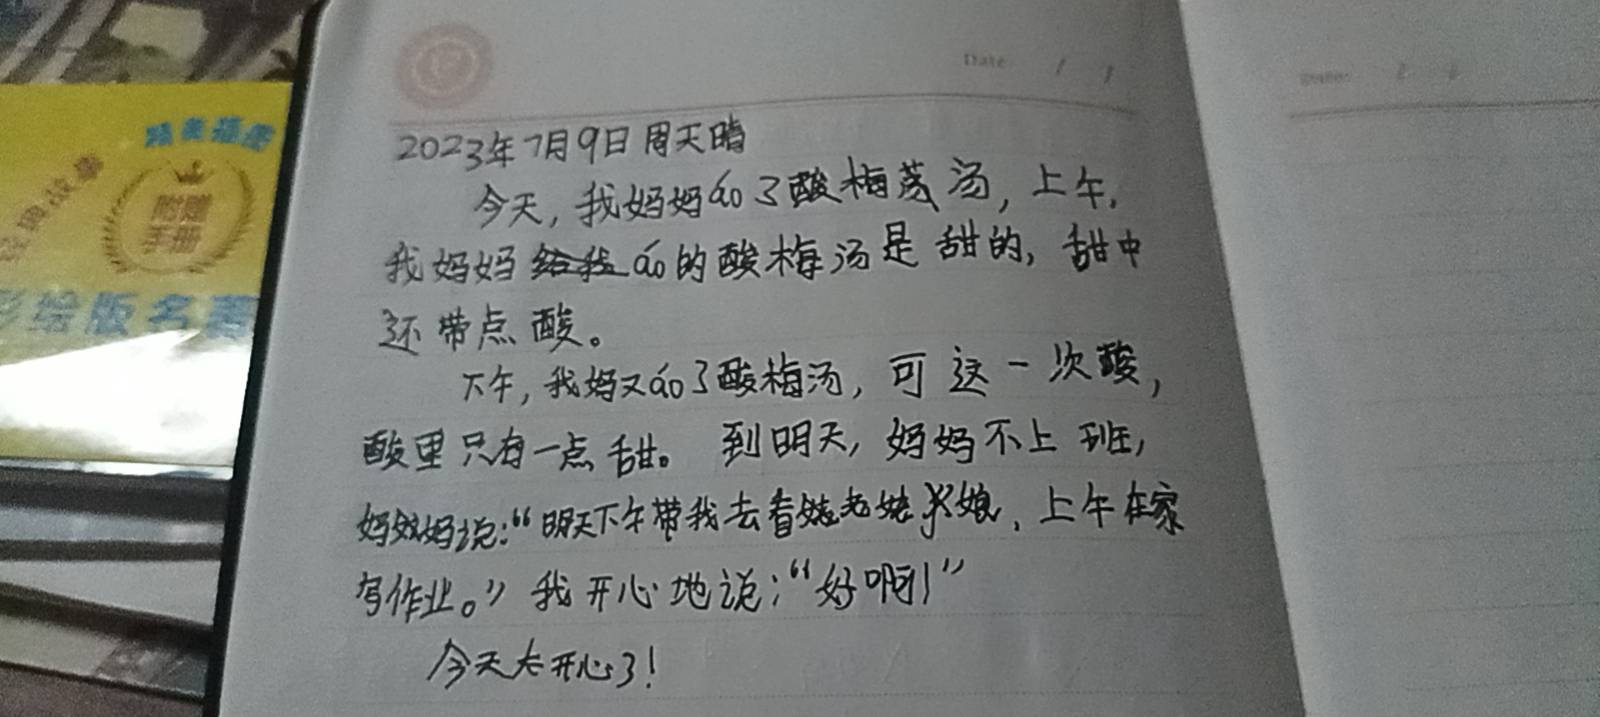 精美插图
附赠
手册
彩绘版名著
Date
2023年7月9日周天晴
今天,我妈妈áo了酸梅汤,上午,
我妈妈给我áo的酸梅汤是甜的,甜中
还带点酸。
下午,我妈又áo了酸梅汤,可这一次酸,
酸里只有一点甜。到明天,妈妈不上班,
妈妈说:“明天下午带我去看老娘,上午在家
写作业。”我开心地说:“好啊!”
今天太开心了!